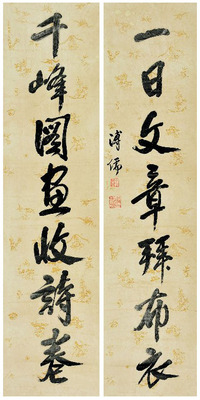 一日文章拜布衣
溥儒
千峰圖畫收詩卷